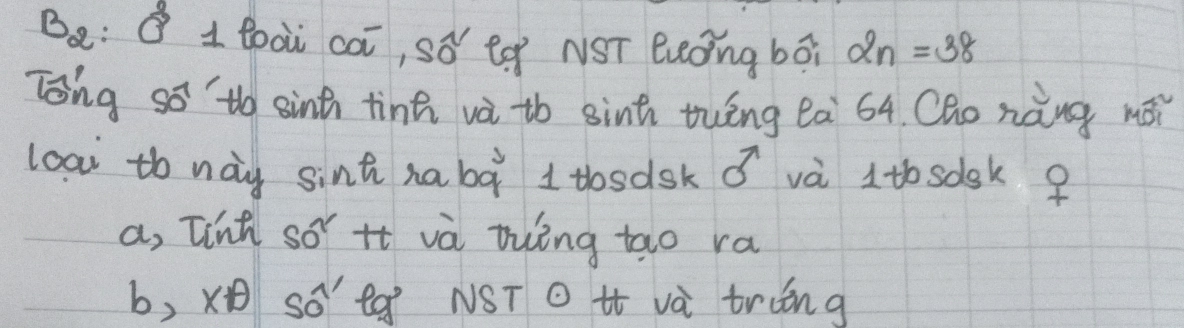 B2: Ở 1 loài cá, số lg NST lưỡng bội 2n = 38
Tổng số tb sinh tinh và tb sinh trứng là 64. Cho rằng mỗi
loại tb này sinh ra bởi 1 tbsdsk ♂ và 1tbsdsk ♀
a, Tính số tt và trứng tạo ra
b, XĐ số lg NST ⊙ tt và trứng